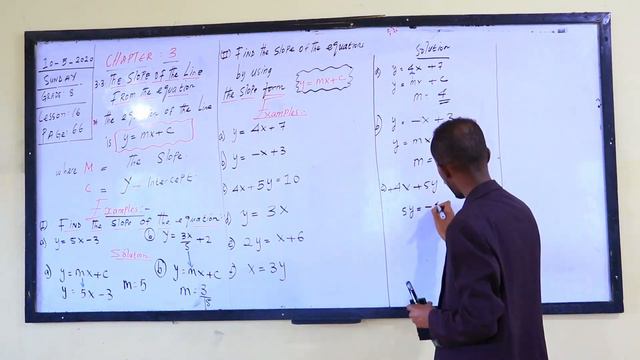 10-5-2020
SUNDAY
GRADE: 8
Lesson: 16
PAGE: 66
CHAPTER: 3
3.3 The Slope of the Line
From the equation
* the equation of the Line
is y = mx+c
where M = The Slope
C = Y-Intercept
Examples:-
I) Find the slope of the equation:
a) y = 5x-3
b) y = 3x/5 + 2
Solution
a) y = mx+c
y = 5x-3
m=5
b) y = mx+c
m = 3/5
II) Find the Slope of the equations
by using
the slope form y=mx+c
Examples:-
a) y = 4x+7
b) y = -x+3
c) 4x+5y=10
d) y = 3x
e) 2y = x+6
x = 3y
Solution
a) y = 4x+7
y = mx+c
m = 4
b) y = -x+3
y = mx
m =
4x+5y
5y = -